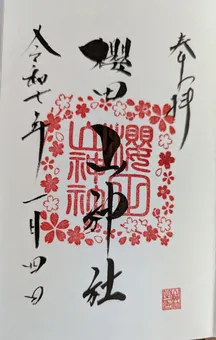 奉拝
櫻田山神社
令和七年一月四日
櫻田
山神社